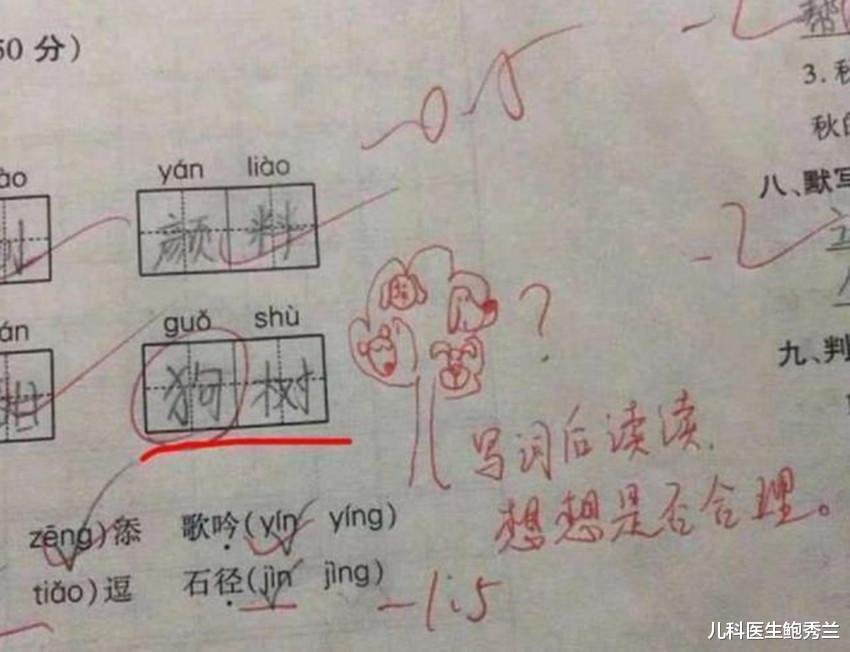 50 分）
帮
-0.5
3. 秋
秋的
ào
yán liào
颜料
八、默写
án
guǒ shù
狗树
?
九、判
写词后读读,
想想是否合理。
zēng)添 歌吟(yín yíng)
tiǎo)逗 石径(jìn jìng)
-1.5
儿科医生鲍秀兰